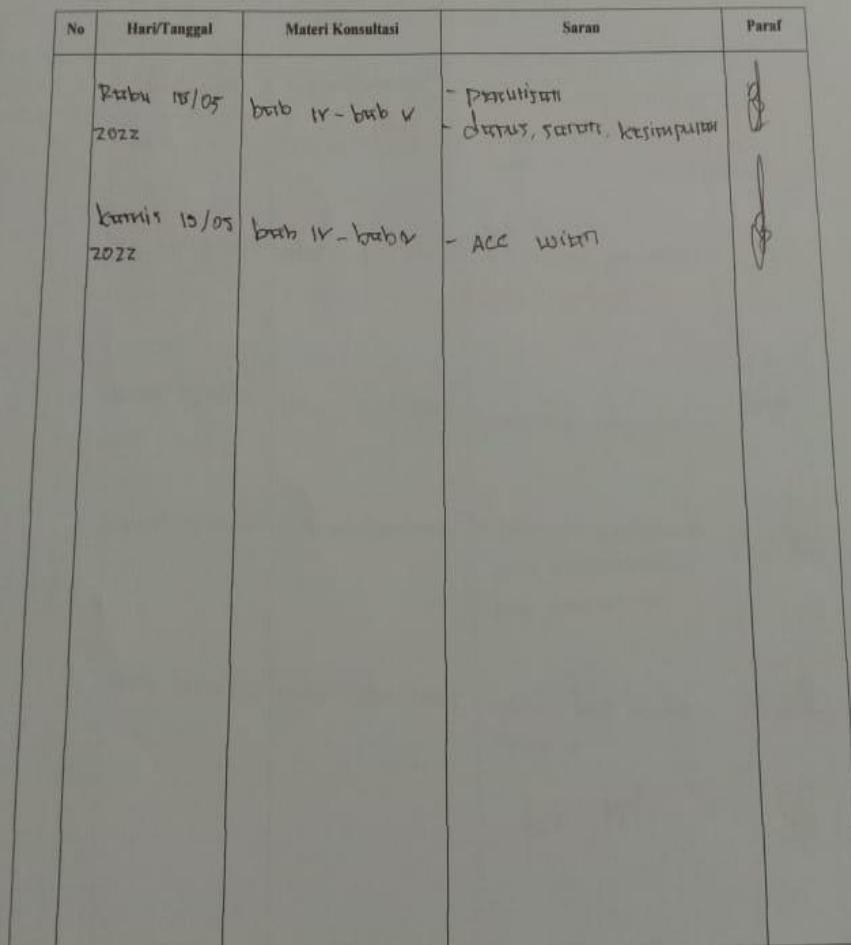 No Hari/Tanggal Materi Konsultasi Saran Paraf
Rabu 18/05 bab IV - bab V - penulisan
2022 - dapus, saran, kesimpulan
kamis 19/05 bab IV - bab V - ACC ujian
2022